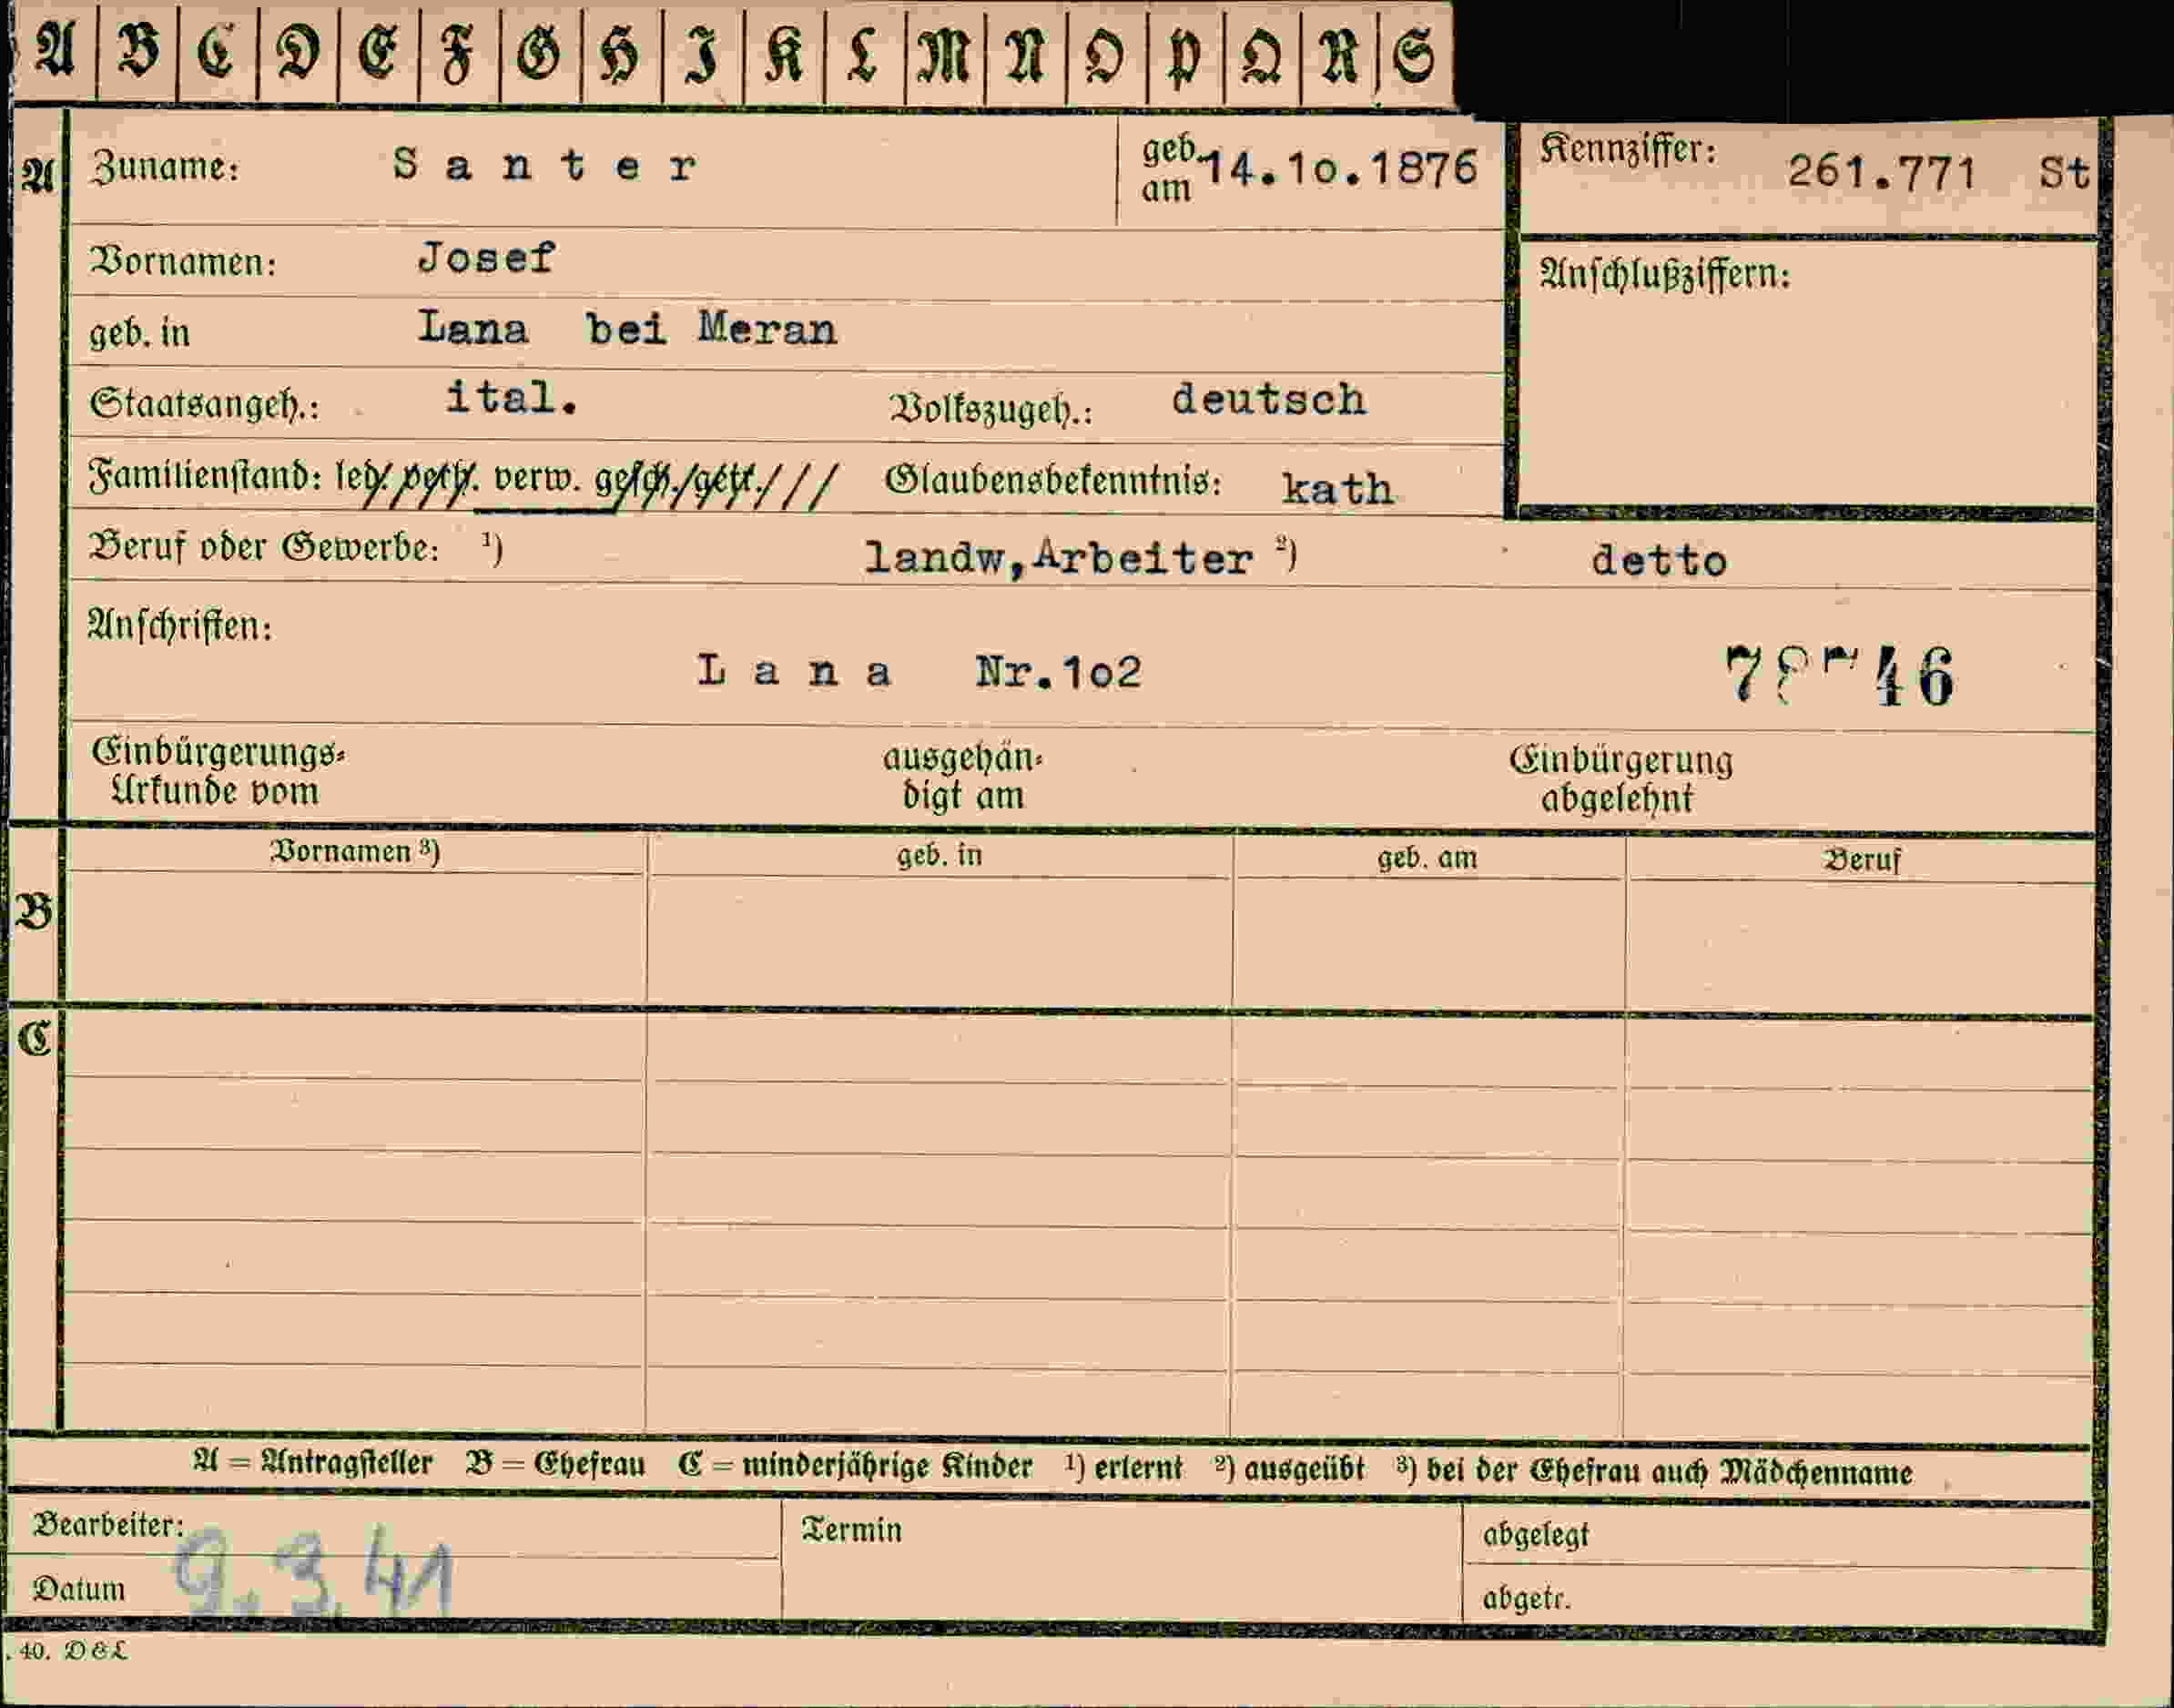 A B C D E F G H I K L M N O P Q R S
A Zuname: Santer geb. am 14.10.1876 Kennziffer: 261.771 St
Vornamen: Josef Anschlußziffern:
geb. in Lana bei Meran
Staatsangeh.: ital. Volkszugeh.: deutsch
Familienstand: led. verh. verw. gesch./getr./// Glaubensbekenntnis: kath
Beruf oder Gewerbe: ¹) landw,Arbeiter ²) detto
Anschriften:
Lana Nr.102
Einbürgerungs- ausgehän- Einbürgerung
Urkunde vom digt am abgelehnt
Vornamen ³) geb. in geb. am Beruf
B
C
A = Antragsteller B = Ehefrau C = minderjährige Kinder ¹) erlernt ²) ausgeübt ³) bei der Ehefrau auch Mädchenname
Bearbeiter: Termin abgelegt
Datum 9.9.41 abgetr.
.40. D&L